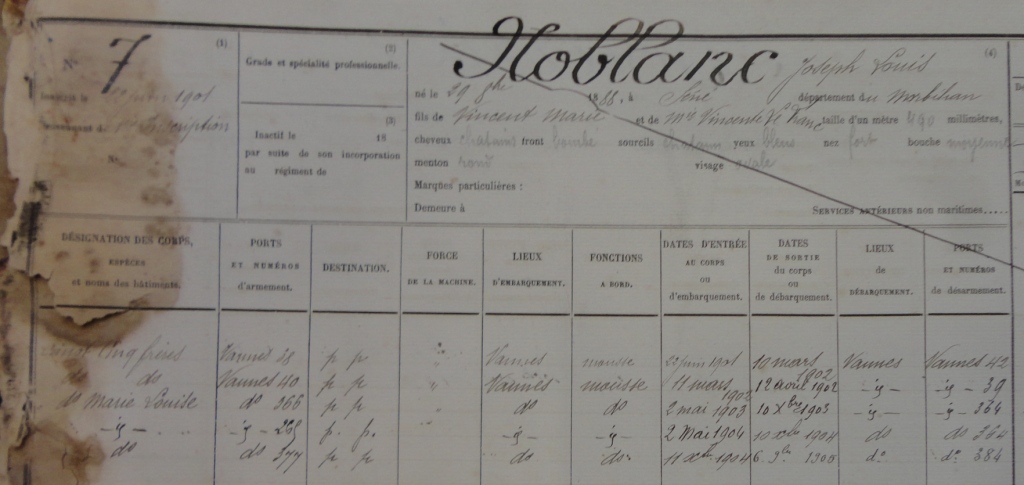 (1)
N° 7
Inscrit le 1901
Inscription
N°
(2)
Grade et spécialité professionnelle.
(3)
Inactif le 18
par suite de son incorporation
au régiment de
(4)
Noblanc Joseph Louis
né le 29 8bre 1886, à Séné département du Morbihan
fils de Vincent Marie et de Mie Vincente Le Franc taille d'un mètre 490 millimètres,
cheveux chatains front bombé sourcils chatain yeux bleus nez fort bouche moyenne
menton rond visage ovale
Marques particulières :
Demeure à
Services antérieurs non maritimes.....
DÉSIGNATION DES CORPS,
ESPÈCES
et noms des bâtiments.
PORTS
ET NUMÉROS
d'armement.
DESTINATION.
FORCE
DE LA MACHINE.
LIEUX
D'EMBARQUEMENT.
FONCTIONS
A BORD.
DATES D'ENTRÉE
AU CORPS
ou
d'embarquement.
DATES
DE SORTIE
du corps
ou
de débarquement.
LIEUX
de
DÉBARQUEMENT.
PORTS
ET NUMÉRO
de désarmement.
Cinq frères Vannes 38 p p " Vannes mousse 22 juin 1901 10 mars 1902 Vannes Vannes 42
do Vannes 40 p p " Vannes mousse 11 mars 1902 12 août 1902 - ij - - ij - 39
do Marie Louise do 366 p p " do do 2 mai 1903 10 Xbre 1903 - ij - - ij - 364
- ij - - ij - 265 p. p. - ij - - ij - 2 Mai 1904 10 xbre 1904 do do 364
do do 377 p p do do 11 xbre 1904 6. 9bre 1905 do do 384